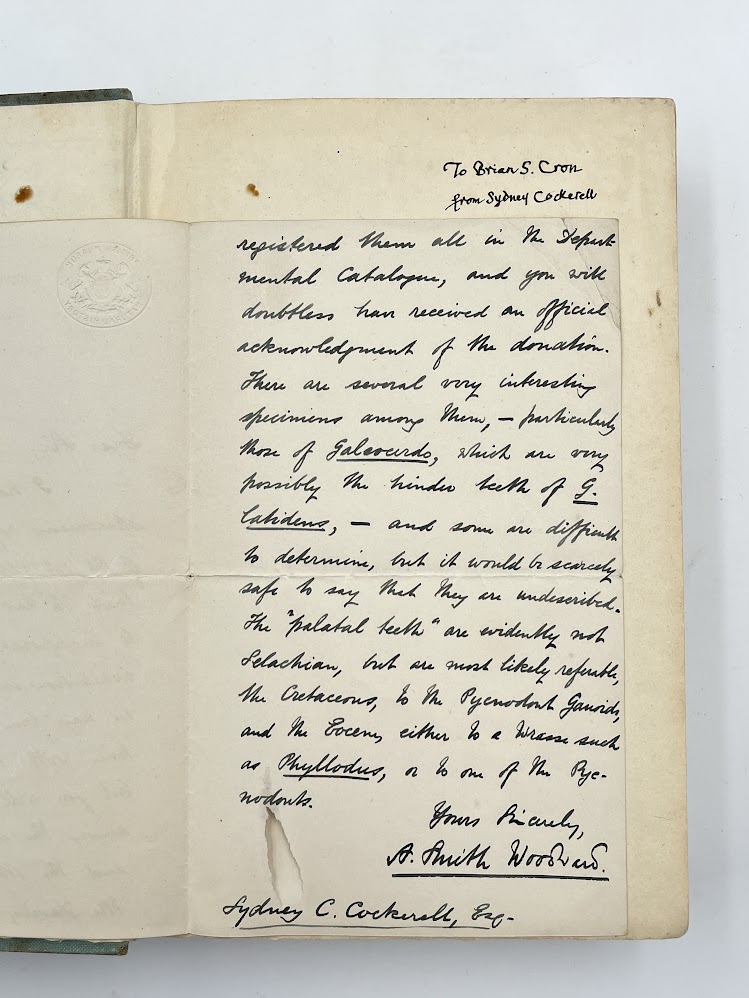 To Brian S. Cron
from Sydney Cockerell
registered them all in the Depart-
mental Catalogue, and you will
doubtless have received an official
acknowledgment of the donation.
There are several very interesting
specimens among them, — particularly
those of Galeocerdo, which are very
possibly the hinder teeth of G.
latidens, — and some are difficult
to determine, but it would be scarcely
safe to say that they are undescribed.
The "palatal teeth" are evidently not
Selachian, but are most likely referable,
the Cretaceous, to the Pycnodont Ganoids,
and the Eocene, either to a Wrasse such
as Phyllodus, or to one of the Pyc-
nodonts.
Yours Sincerely,
A. Smith Woodward.
Sydney C. Cockerell, Esq.